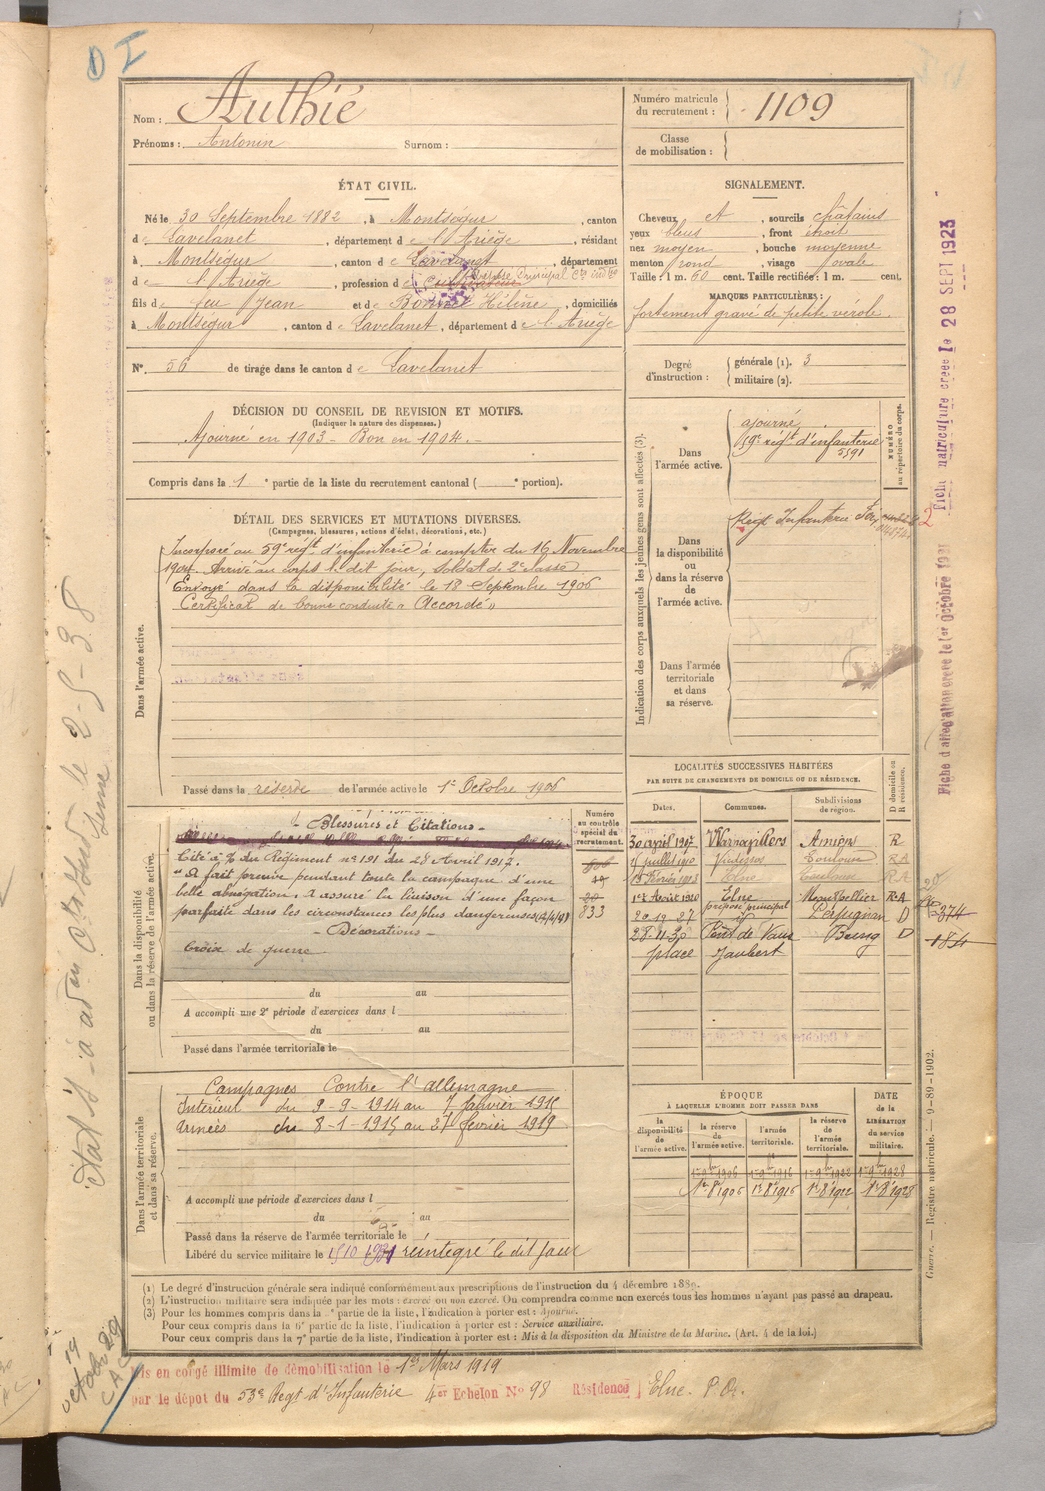 D I
Nom : Authié
Prénoms : Antonin Surnom :
Numéro matricule du recrutement : 1109
Classe de mobilisation :
ÉTAT CIVIL.
Né le 30 Septembre 1882, à Montségur, canton
de Lavelanet, département de l'Ariège, résidant
à Montségur, canton de Lavelanet, département
de l'Ariège, profession de Cultivateur
fils de feu Jean et de Bonnet Hélène, domiciliés
à Montségur, canton de Lavelanet, département de l'Ariège
N° 56 de tirage dans le canton de Lavelanet
SIGNALEMENT.
Cheveux et, sourcils châtains
yeux bleus, front étroit
nez moyen, bouche moyenne
menton rond, visage ovale
Taille : 1 m. 60 cent. Taille rectifiée : 1 m. cent.
MARQUES PARTICULIÈRES :
fortement gravé de petite vérole.
Degré d'instruction : générale (1). 3
militaire (2).
DÉCISION DU CONSEIL DE REVISION ET MOTIFS.
(Indiquer la nature des dispenses.)
Ajourné en 1903 - Bon en 1904. -
Compris dans la 1e partie de la liste du recrutement cantonal ( e portion).
Indication des corps auxquels les jeunes gens sont affectés (3).
Dans l'armée active.
ajourné
59e régt d'infanterie
5591
NUMÉRO au répertoire du corps.
Dans la disponibilité ou dans la réserve de l'armée active.
Régt Infanterie Foix
Dans l'armée territoriale et dans sa réserve.
DÉTAIL DES SERVICES ET MUTATIONS DIVERSES.
(Campagnes, blessures, actions d'éclat, décorations, etc.)
Dans l'armée active.
Incorporé au 59e régt d'infanterie à compter du 16 Novembre
1904. Arrivé au corps le dit jour, soldat de 2e classe
Envoyé dans la disponibilité le 18 Septembre 1906
Certificat de bonne conduite "Accordé"
Passé dans la réserve de l'armée active le 1er Octobre 1906
Dans la disponibilité ou dans la réserve de l'armée active.
- Blessures et Citations -
Cité à l'o/ du Régiment n° 191 du 28 Avril 1917.
"A fait preuve pendant toute la campagne d'une
belle abnégation, a assuré la liaison d'une façon
parfaite dans les circonstances les plus dangereuses
- Décorations -
Croix de guerre
Numéro au contrôle spécial du recrutement.
833
du au
A accompli une 2e période d'exercices dans l
du au
Passé dans l'armée territoriale le
LOCALITÉS SUCCESSIVES HABITÉES
PAR SUITE DE CHANGEMENTS DE DOMICILE OU DE RÉSIDENCE.
Dates. Communes. Subdivisions de région. D domicile ou R résidence.
30 avril 1907 Amiens R
15 juillet 1910 Vicdessos Toulouse RA
15 Février 1913 Elne Toulouse RA
1er Août 1920 Elne Montpellier RA
préposé principal
20 19 27 id Perpignan D
28 11 30 Pont de Vaux Bourg D
place Jaubert
374
Dans l'armée territoriale et dans sa réserve.
Campagnes Contre l'allemagne
Intérieur du 9-9-1914 au 7 Janvier 1915
Armées du 8-1-1915 au 27 février 1919
A accompli une période d'exercices dans l
du au
Passé dans la réserve de l'armée territoriale le
Libéré du service militaire le réintégré le dit jour
ÉPOQUE
À LAQUELLE L'HOMME DOIT PASSER DANS
la disponibilité de l'armée active.
la réserve de l'armée active.
l'armée territoriale.
la réserve de l'armée territoriale.
DATE de la LIBÉRATION du service militaire.
(1) Le degré d'instruction générale sera indiqué conformément aux prescriptions de l'instruction du 4 décembre 1889.
(2) L'instruction militaire sera indiquée par les mots : exercé ou non exercé. On comprendra comme non exercés tous les hommes n'ayant pas passé au drapeau.
(3) Pour les hommes compris dans la e partie de la liste, l'indication à porter est : Ajourné.
Pour ceux compris dans la 6e partie de la liste, l'indication à porter est : Service auxiliaire.
Pour ceux compris dans la 7e partie de la liste, l'indication à porter est : Mis à la disposition du Ministre de la Marine. (Art. 4 de la loi.)
Mis en congé illimité de démobilisation le 1er Mars 1919
par le dépôt du 53e Régt d'Infanterie 4er Echelon N° 98 Résidence Elne. P. Or.
Guerre. — Registre matricule. — 9-89-1902.
Fiche matriculaire créée le 28 SEPT 1923